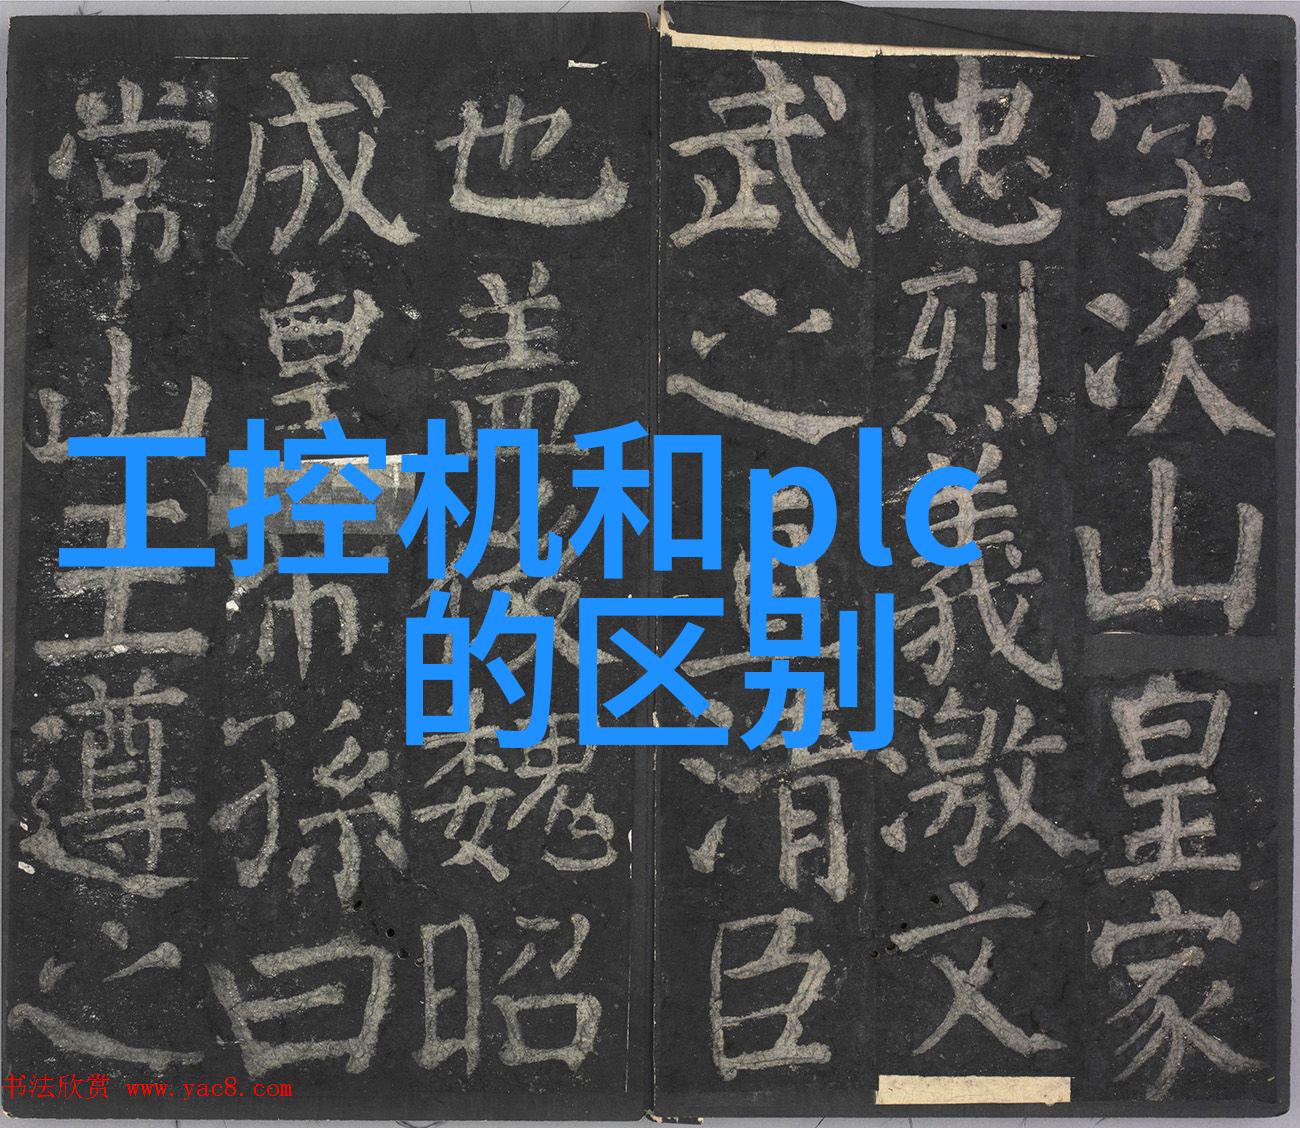 工控机和plc
的区别
字次山皇家
忠烈義激文
武之直清臣
也盖後魏昭
成皇帝孫曰
常山王遵之
书法欣赏 www.yac8.com